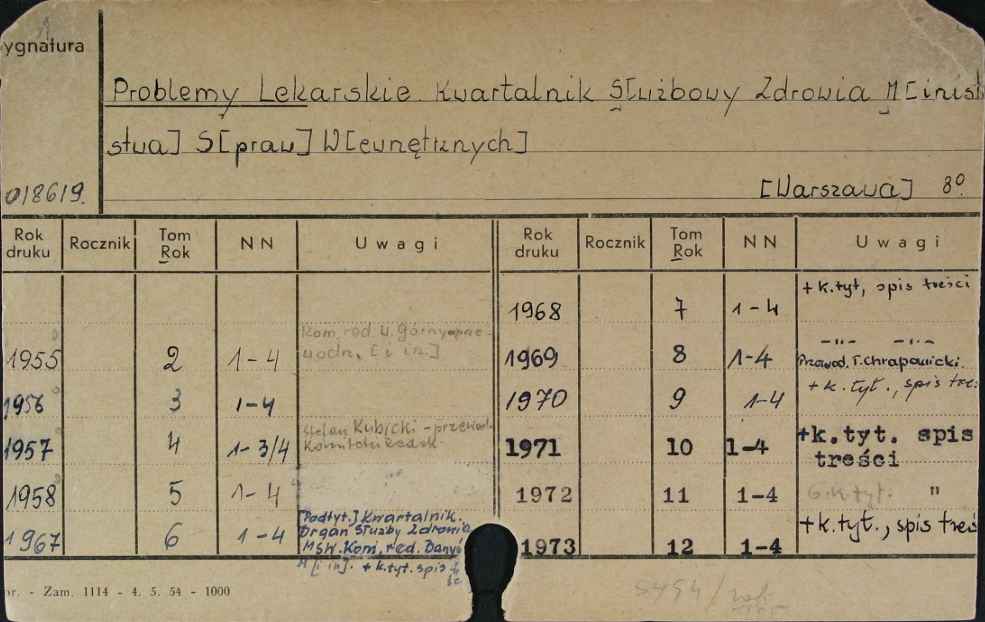 ygnatura
Problemy Lekarskie. Kwartalnik Służbowy Zdrowia M[inist
stwa] S[praw] W[ewnętrznych]
018619.
[Warszawa] 8º
Rok druku Rocznik Tom Rok NN Uwagi Rok druku Rocznik Tom Rok NN Uwagi
1968 7 1-4 + k.tyt, spis treści
1955 2 1-4 Kom. red [i in.] 1969 8 1-4 -"- -"- Przewod. T. Chrapowicki.
1956 3 1-4 1970 9 1-4 + k. tyt., spis tre
1957 4 1-3/4 Stefan Kubicki - przewod. 1971 10 1-4 +k.tyt. spis treści
1958 5 1-4 1972 11 1-4 k.tyt. "
1967 6 1-4 [Podtyt.] Kwartalnik. Organ Służby Zdrowia MSW. Kom. red. Dany M [i in]. + k.tyt. spis 1973 12 1-4 +k.tyt., spis treś
or. - Zam. 1114 - 4. 5. 54 - 1000